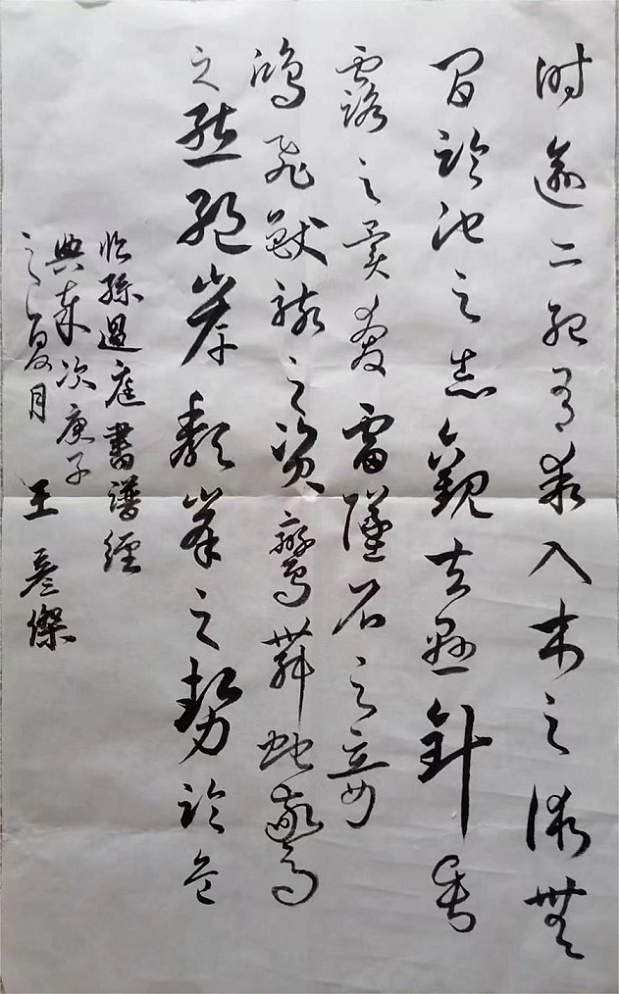 時逾二紀有乖入木之術無
間臨池之志觀夫懸針垂
露之異奔雷墜石之奇
鴻飛獸駭之資鸞舞蛇驚
之態絕岸頹峯之勢臨危
臨孫過庭書譜經
典歲次庚子
之夏月 王彥傑